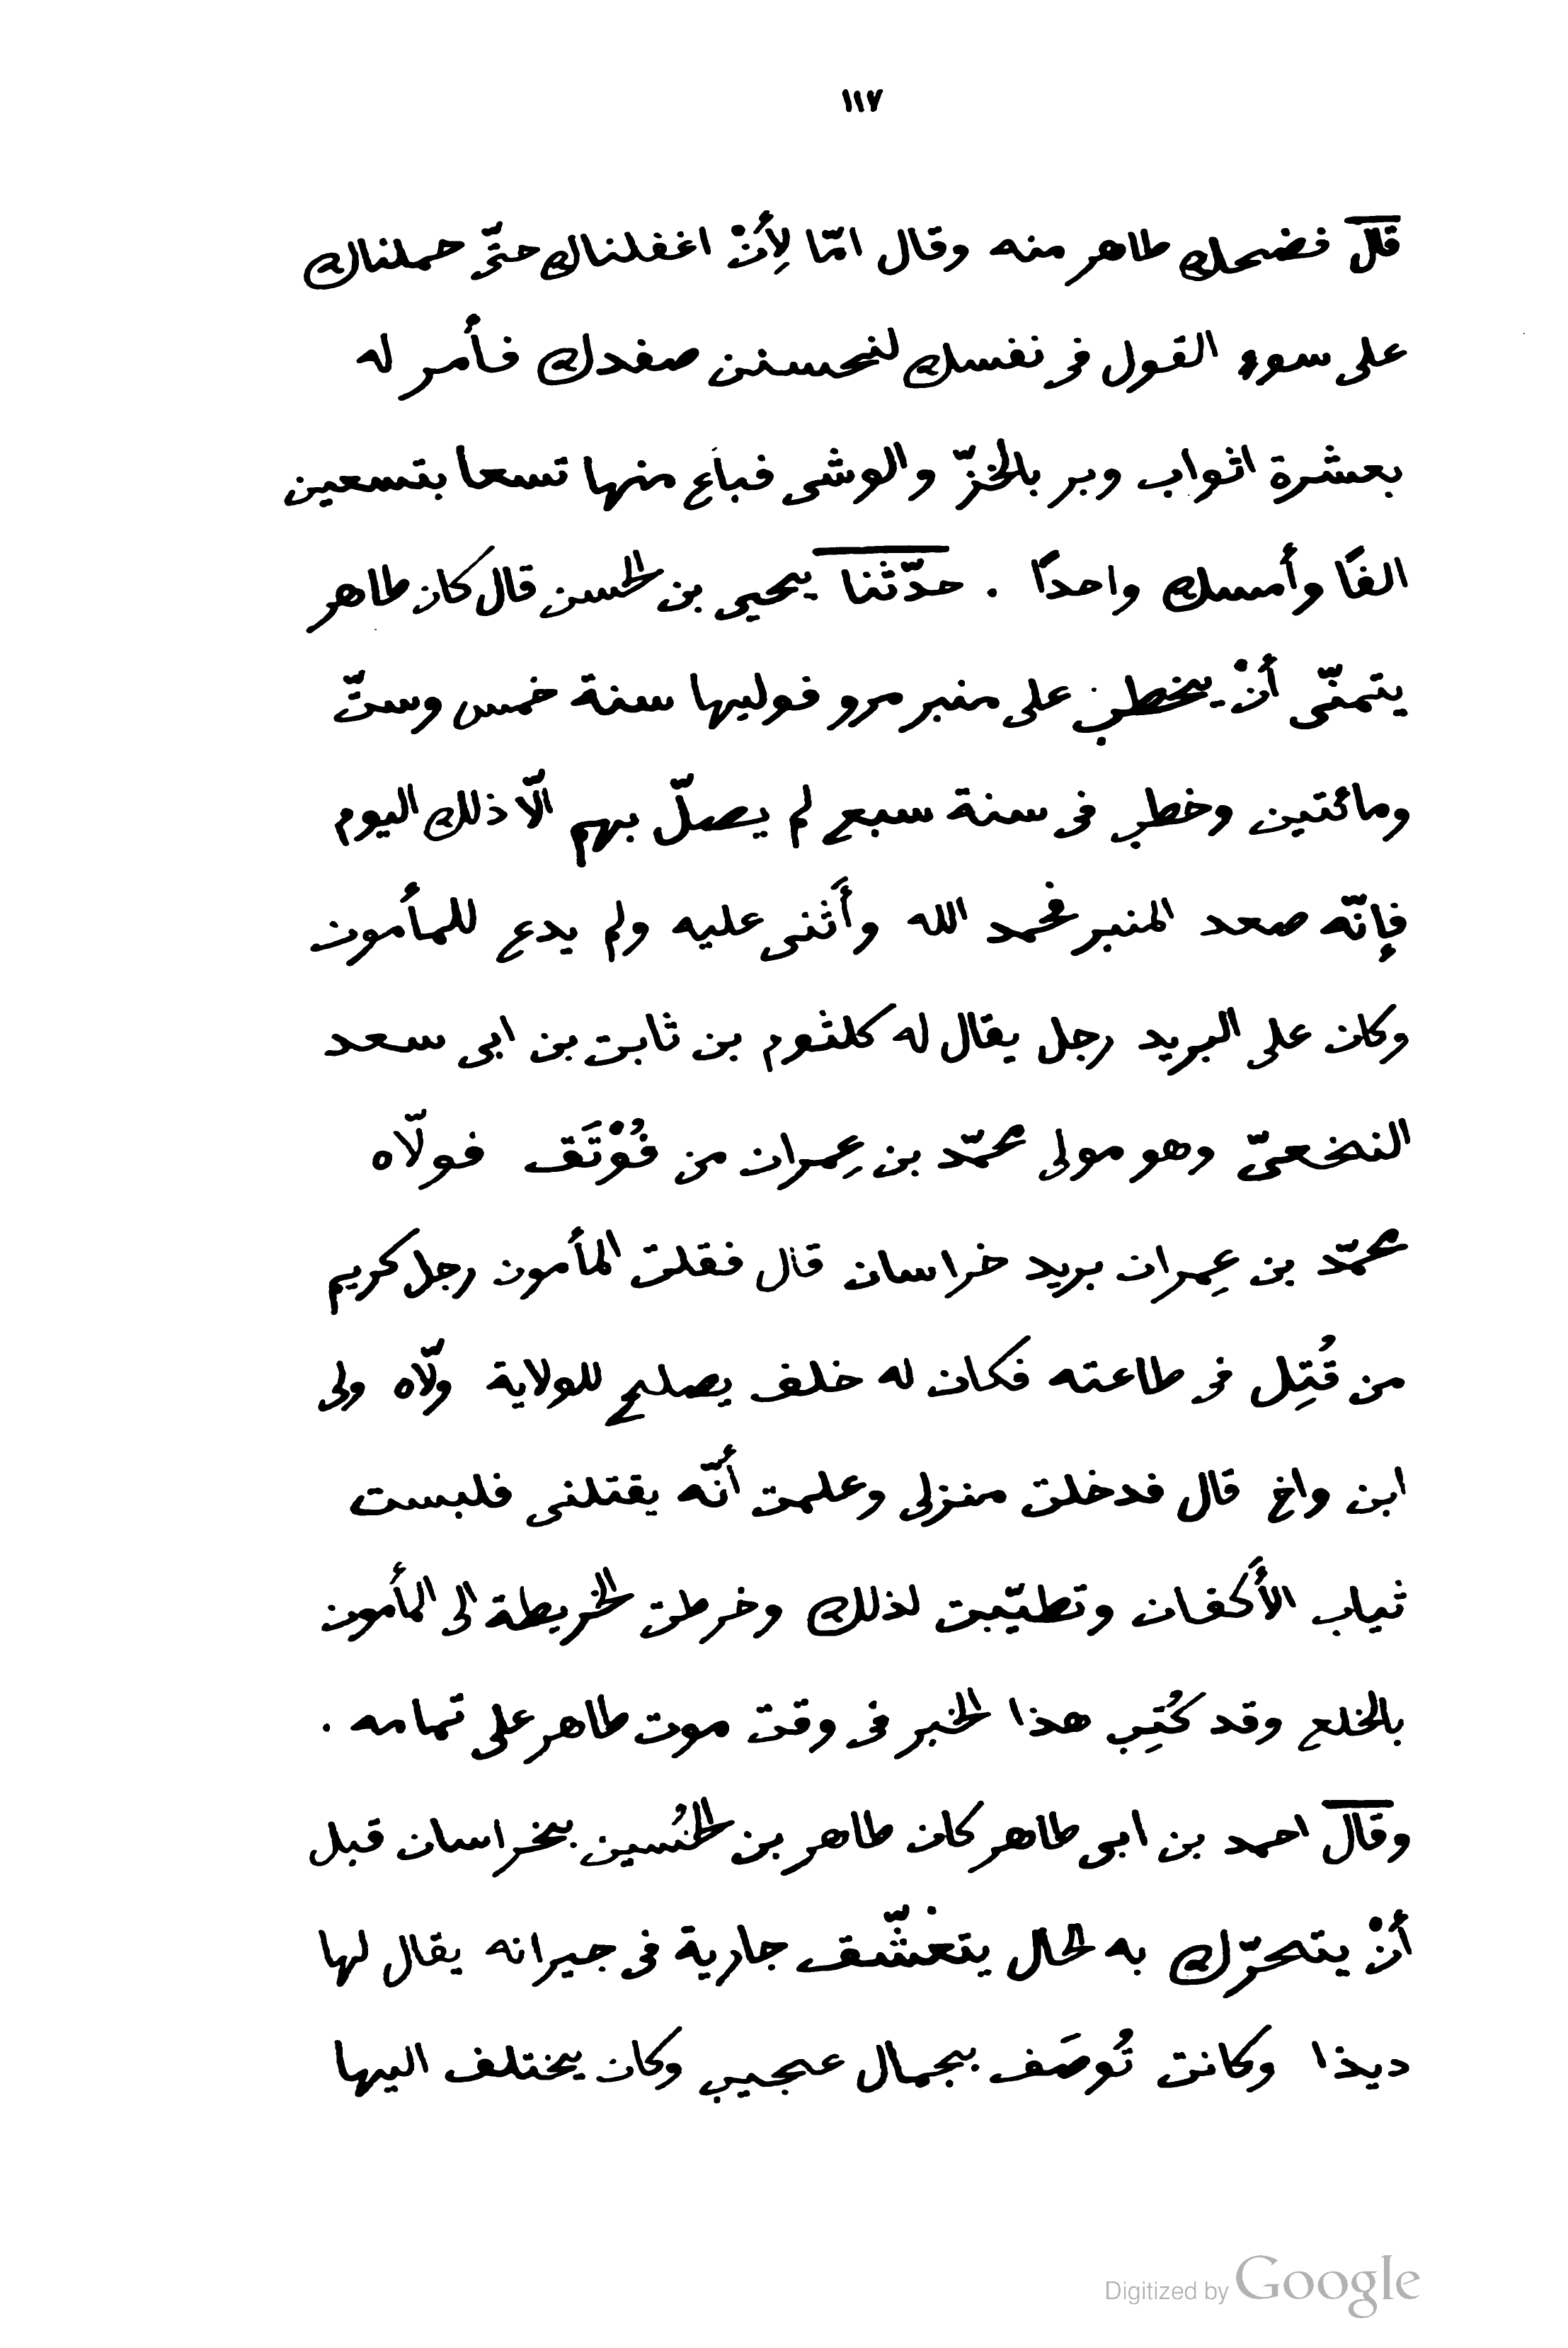 ١١٧
قال فضحك طاهر منه وقال امّا لِأَنْ اغفلناك حتّى حملناك
على سوء القول فى نفسك لنحسنن صفدك فأمر له
بعشرة اثواب وبر بالخزّ والوشى فباع منها تسعا بتسعين
الفًا وأمسك واحدًا . حدّثنا يحيى بن الحسن قال كان طاهر
يتمنّى أَنْ يخطب على منبر مرو فوليها سنة خمس وستّ
ومائتين وخطب فى سنة سبع لم يصلّ بهم الّا ذلك اليوم
فإنّه صعد المنبر فحمد الله وأَثنى عليه ولم يدع للمأمون
وكان على البريد رجل يقال له كلثوم بن ثابت بن ابى سعد
النخعىّ وهو مولى محمّد بن عِمران من فُوْتَق فولّاه
محمّد بن عِمران بريد خراسان قال فقلت المأمون رجل كريم
من قُتِل فى طاعته فكان له خلف يصلح للولاية ولّاه ولى
ابن واخ قال فدخلت منزلى وعلمت أنّه يقتلنى فلبست
ثياب الأَكفان وتطيّبت لذلك وخرطت الخريطة الى المأمون
بالخلع وقد كُتِب هذا الخبر فى وقت موت طاهر على تمامه .
وقال احمد بن ابى طاهر كان طاهر بن الحُسين بخراسان قبل
أَنْ يتحرّك به الحال يتعشّق جارية فى جيرانه يقال لها
ديذا وكانت تُوصَف بجمال عجيب وكان يختلف اليها
Digitized by Google